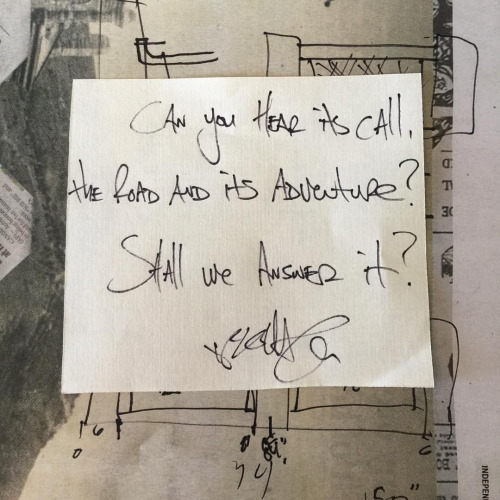 CAN you HEAR its CAll,
the ROAD AND its ADVENtuRE?
SHAll we ANSWER it?
INDEPEN